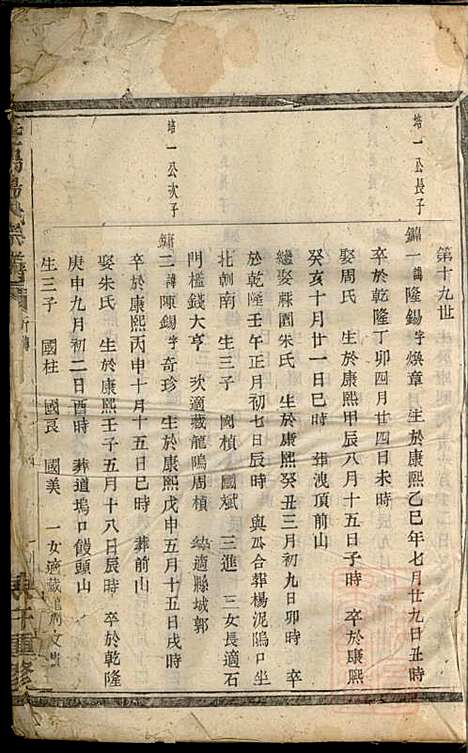 第十九世
培一公長子
鏞一諱隆錫字煥章 生於康熙乙巳年七月廿九日丑時
卒於乾隆丁卯四月廿四日未時
娶周氏 生於康熙甲辰八月十五日子時 卒於康熙
癸亥十月廿一日巳時 葬洩頂前山
繼娶蔴園朱氏 生於康熙癸丑三月初九日卯時 卒
於乾隆壬午正月初七日辰時 與公合葬楊泥塢口坐
北朝南 生三子 國楨 國斌 三進 三女長適石
門檻錢大亨 次適藏龍塢周楨 適縣城郭
培一公次子
鏞二諱陳錫字奇珍 生於康熙戊申五月十五日戌時
卒於康熙丙申十月十五日巳時 葬前山
娶朱氏 生於康熙壬子五月十八日辰時 卒於乾隆
庚申九月初二日酉時 葬道塢口饅頭山
生三子 國柱 國良 國美 一女適藏龍塢文
氏宗譜
重修